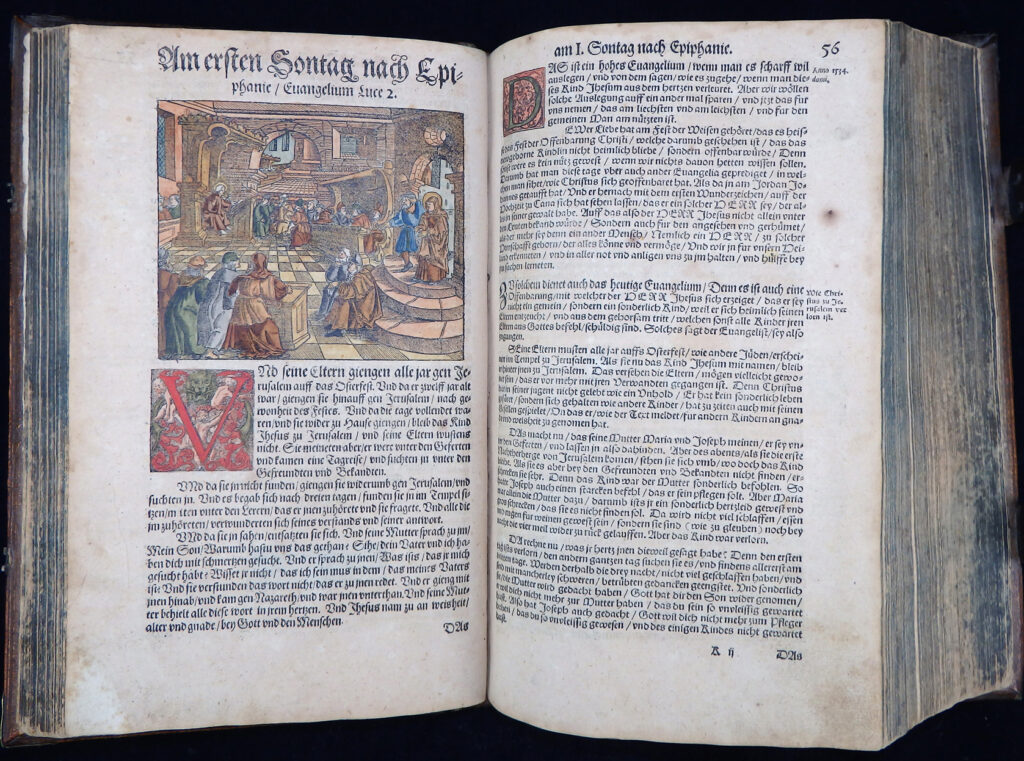 Am ersten Sontag nach Epi-
phanie / Euangelium Luce 2.
VNd seine Eltern giengen alle jar gen Je-
rusalem auff das Osterfest. Vnd da er zwelff jar alt
war / giengen sie hinauff gen Jerusalem / nach ge-
wonheit des Festes. Vnd da die tage vollendet wa-
ren / vnd sie wider zu Hause giengen / bleib das Kind
Jhesus zu Jerusalem / vnd seine Eltern wustens
nicht. Sie meineten aber / er were vnter den Geferten
vnd kamen eine Tagreise / vnd suchten jn vnter den
Gefreundten vnd Bekandten.
Vnd da sie jn nicht funden / giengen sie widerumb gen Jerusalem / vnd
suchten jn. Vnd es begab sich nach dreien tagen / funden sie jn im Tempel sitz-
en / mitten vnter den Lerern / das er jnen zuhörete vnd sie fragete. Vnd alle die
jm zuhöreten / verwunderten sich seines verstands vnd seiner antwort.
Vnd da sie jn sahen / entsatzten sie sich. Vnd seine Mutter sprach zu jm /
Mein Son / Warumb hastu vns das gethan? Sihe / dein Vater vnd ich ha-
ben dich mit schmertzen gesucht. Vnd er sprach zu jnen / Was ists / das jr mich
gesucht habt? Wisset jr nicht / das ich sein mus in dem / das meines Vaters
ist? Vnd sie verstunden das wort nicht / das er zu jnen redet. Vnd er gieng mit
jnen hinab / vnd kam gen Nazareth / vnd war jnen vnterthan. Vnd seine Mut-
ter behielt alle diese wort in jrem hertzen. Vnd Jhesus nam zu an weisheit /
alter vnd gnade / bey Gott vnd den Menschen.
DAs
am I. Sontag nach Epiphanie.
56
DAS ist ein hohes Euangelium / wenn man es scharff wil
auslegen / vnd von dem sagen / wie es zugehe / wenn man die-
ses Kind Jhesum aus dem hertzen verleuret. Aber wir wöllen
solche Auslegung auff ein ander mal sparen / vnd jtzt das für
vns nemen / das am liechsten vnd am leichsten / vnd für den
gemeinen Man am nützten ist.
Anno 1534.
domi.
EWer Liebe hat am Fest der Weisen gehöret / das es heis-
se das Fest der Offenbarung Christi / welche darumb geschehen ist / das das
newgeborne Kindlin nicht heimlich bliebe / sondern offenbar würde / Denn
sonst were es kein nütz gewest / wenn wir nichts dauon hetten wissen sollen.
Darumb hat man diese tage vber auch ander Euangelia geprediget / in wel-
chen man sihet / wie Christus sich geoffenbaret hat. Als da jn am Jordan Jo-
hannes getaufft hat / Vnd er hernach mit dem ersten Wunderzeichen / auff der
Hochzeit zu Cana sich hat sehen lassen / das er ein solcher HERR sey / der al-
les in seiner gewalt habe. Auff das also der HERR Jhesus nicht allein vnter
den Leuten bekand würde / Sondern auch für den angesehen vnd gerhümet /
als der mehr sey denn ein ander Mensch / Nemlich ein HERR / zu solcher
Herrschafft geborn / der alles könne vnd vermöge / Vnd wir jn für vnsern Hei-
land erkenneten / vnd in aller not vnd anligen vns zu jm halten / vnd hülffe bey
jm suchen lerneten.
ZV solchem dienet auch das heutige Euangelium / Denn es ist auch eine
Offenbarung / mit welcher der HERR Jhesus sich erzeiget / das er sey
nicht ein gemein / sondern ein sonderlich Kind / weil er sich heimlich seinen
Eltern entzeucht / vnd aus dem gehorsam tritt / welchen sonst alle Kinder jren
Eltern aus Gottes befehl / schüldig sind. Solches sagt der Euangelist / sey also
zugangen.
Wie Chri-
stus zu Je-
rusalem ver
lorn ist.
SEine Eltern musten alle jar auffs Osterfest / wie andere Jüden / erschei-
nen im Tempel zu Jerusalem. Als sie nu das Kind Jhesum mit namen / bleib
hinter jnen zu Jerusalem. Das versehen die Eltern / mögen villeicht gewo-
net sein / das er vor mehr mit jren Verwandten gegangen ist. Denn Christus
in seiner jugent nicht gelebt wie ein Vnhold / Er hat kein sonderlich leben
gefüret / sondern sich gehalten wie andere Kinder / hat zu zeiten auch mit seinen
Gesellen gespielet / On das er / wie der Text meldet / für andern Kindern an gna-
de zugenomen hat.
DAs macht nu / das seine Mutter Maria vnd Joseph meinen / er sey vn-
ter den Geferten / vnd lassen jn also dahinden. Aber des abents / als sie die erste
Nachtherberge von Jerusalem komen / sehen sie sich vmb / wo doch das Kind
bleibe. Als sie es aber bey den Gefreundten vnd Bekandten nicht finden / er-
schrecken sie sehr. Denn das Kind war der Mutter sonderlich befohlen. So
hatte Joseph auch einen starcken befehl / das er sein pflegen solt. Aber Maria
war allein die Mutter dazu / darumb ists jr ein sonderlich hertzleid gewest vnd
schrecken / das sie es nicht finden sol. Da wird nicht viel schlaffen / essen
vnd trincken für weinen gewest sein / sondern sie sind (wie zu gleuben) noch bey
nacht die vier meil wider zu rück gelauffen. Aber das Kind war verlorn.
DA rechne nu / was jr hertz jnen dieweil gesagt habe? Denn den ersten
tag ists verlorn / den andern gantzen tag suchen sie es / vnd findens allererst am
dritten tag. Werden derhalb die drey nacht / nicht viel geschlaffen haben / vnd
sich mit mancherley schweren / betrübten gedancken geengstet. Vnd sonderlich
die Mutter wird gedacht haben / Gott hat dir den Son wider genomen /
wil dich nicht mehr zur Mutter haben / das du sein so vnvleissig gewartet
hast. Also hat Joseph auch gedacht / Gott wil dich nicht mehr zum Pfleger
haben / das du so vnvleissig gewesen / vnd des einigen Kindes nicht gewartet
hast.
K ij
DAs